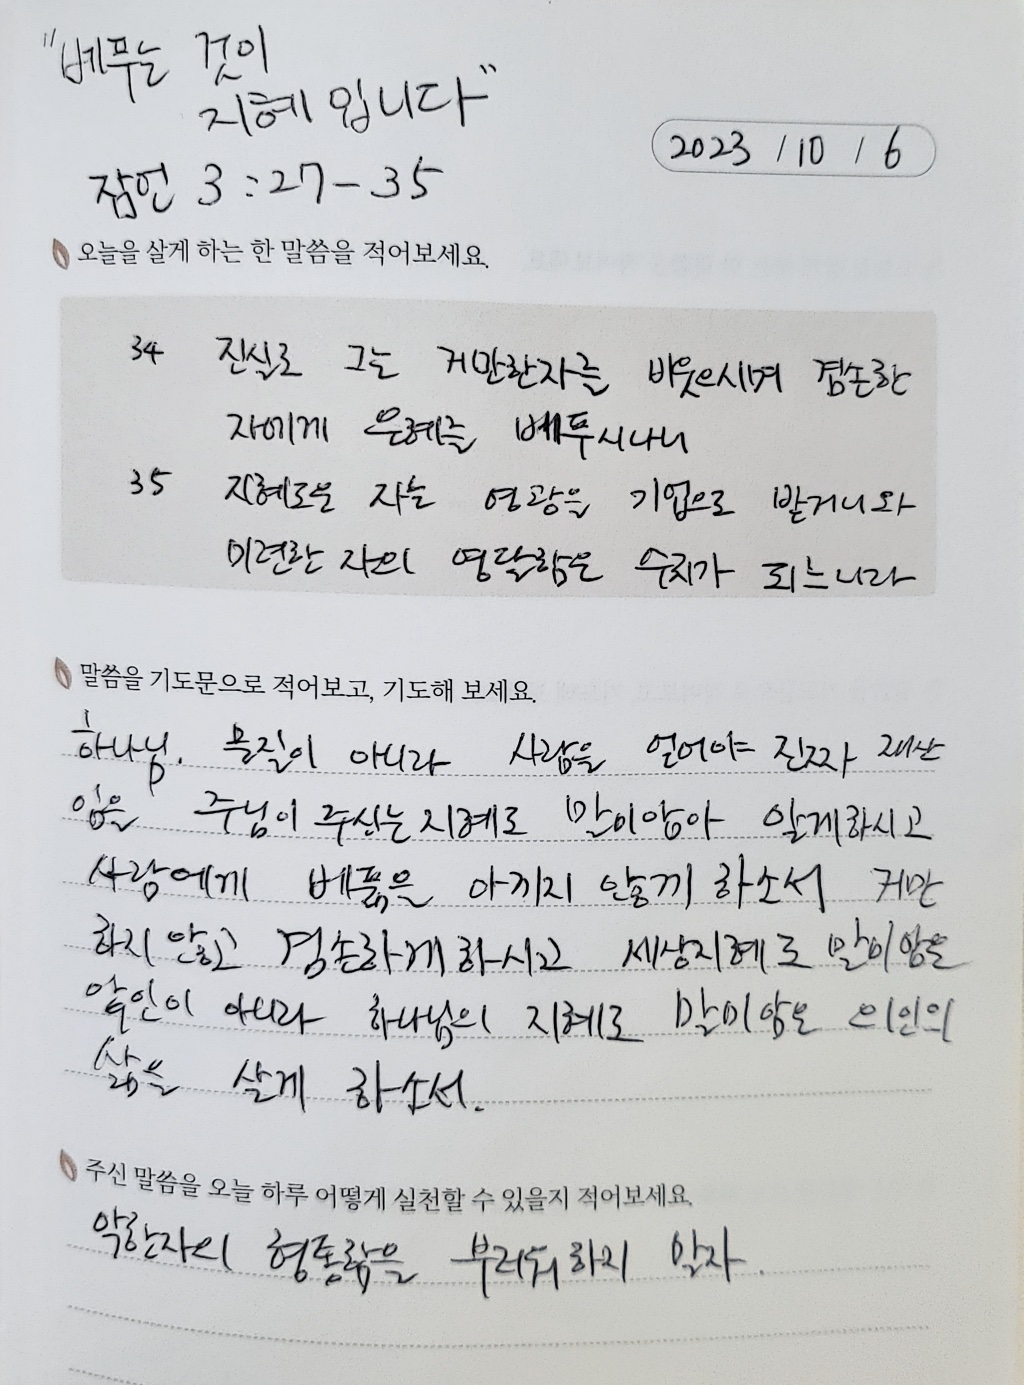 "베푸는 것이
지혜입니다"
2023 / 10 / 6
잠언 3:27-35
오늘을 살게 하는 한 말씀을 적어보세요.
34 진실로 그는 거만한자를 비웃으시며 겸손한
자에게 은혜를 베푸시나니
35 지혜로운 자는 영광을 기업으로 받거니와
미련한 자의 영달함은 수치가 되느니라
말씀을 기도문으로 적어보고, 기도해 보세요.
하나님. 물질이 아니라 사람을 얻어야 진짜 재산
임을 주님이 주시는 지혜로 말미암아 알게하시고
사람에게 베풂을 아끼지 않게 하소서 거만
하지 않고 겸손하게 하시고 세상지혜로 말미암은
악인이 아니라 하나님의 지혜로 말미암은 의인의
삶을 살게 하소서.
주신 말씀을 오늘 하루 어떻게 실천할 수 있을지 적어보세요.
악한자의 형통함을 부러워하지 말자.